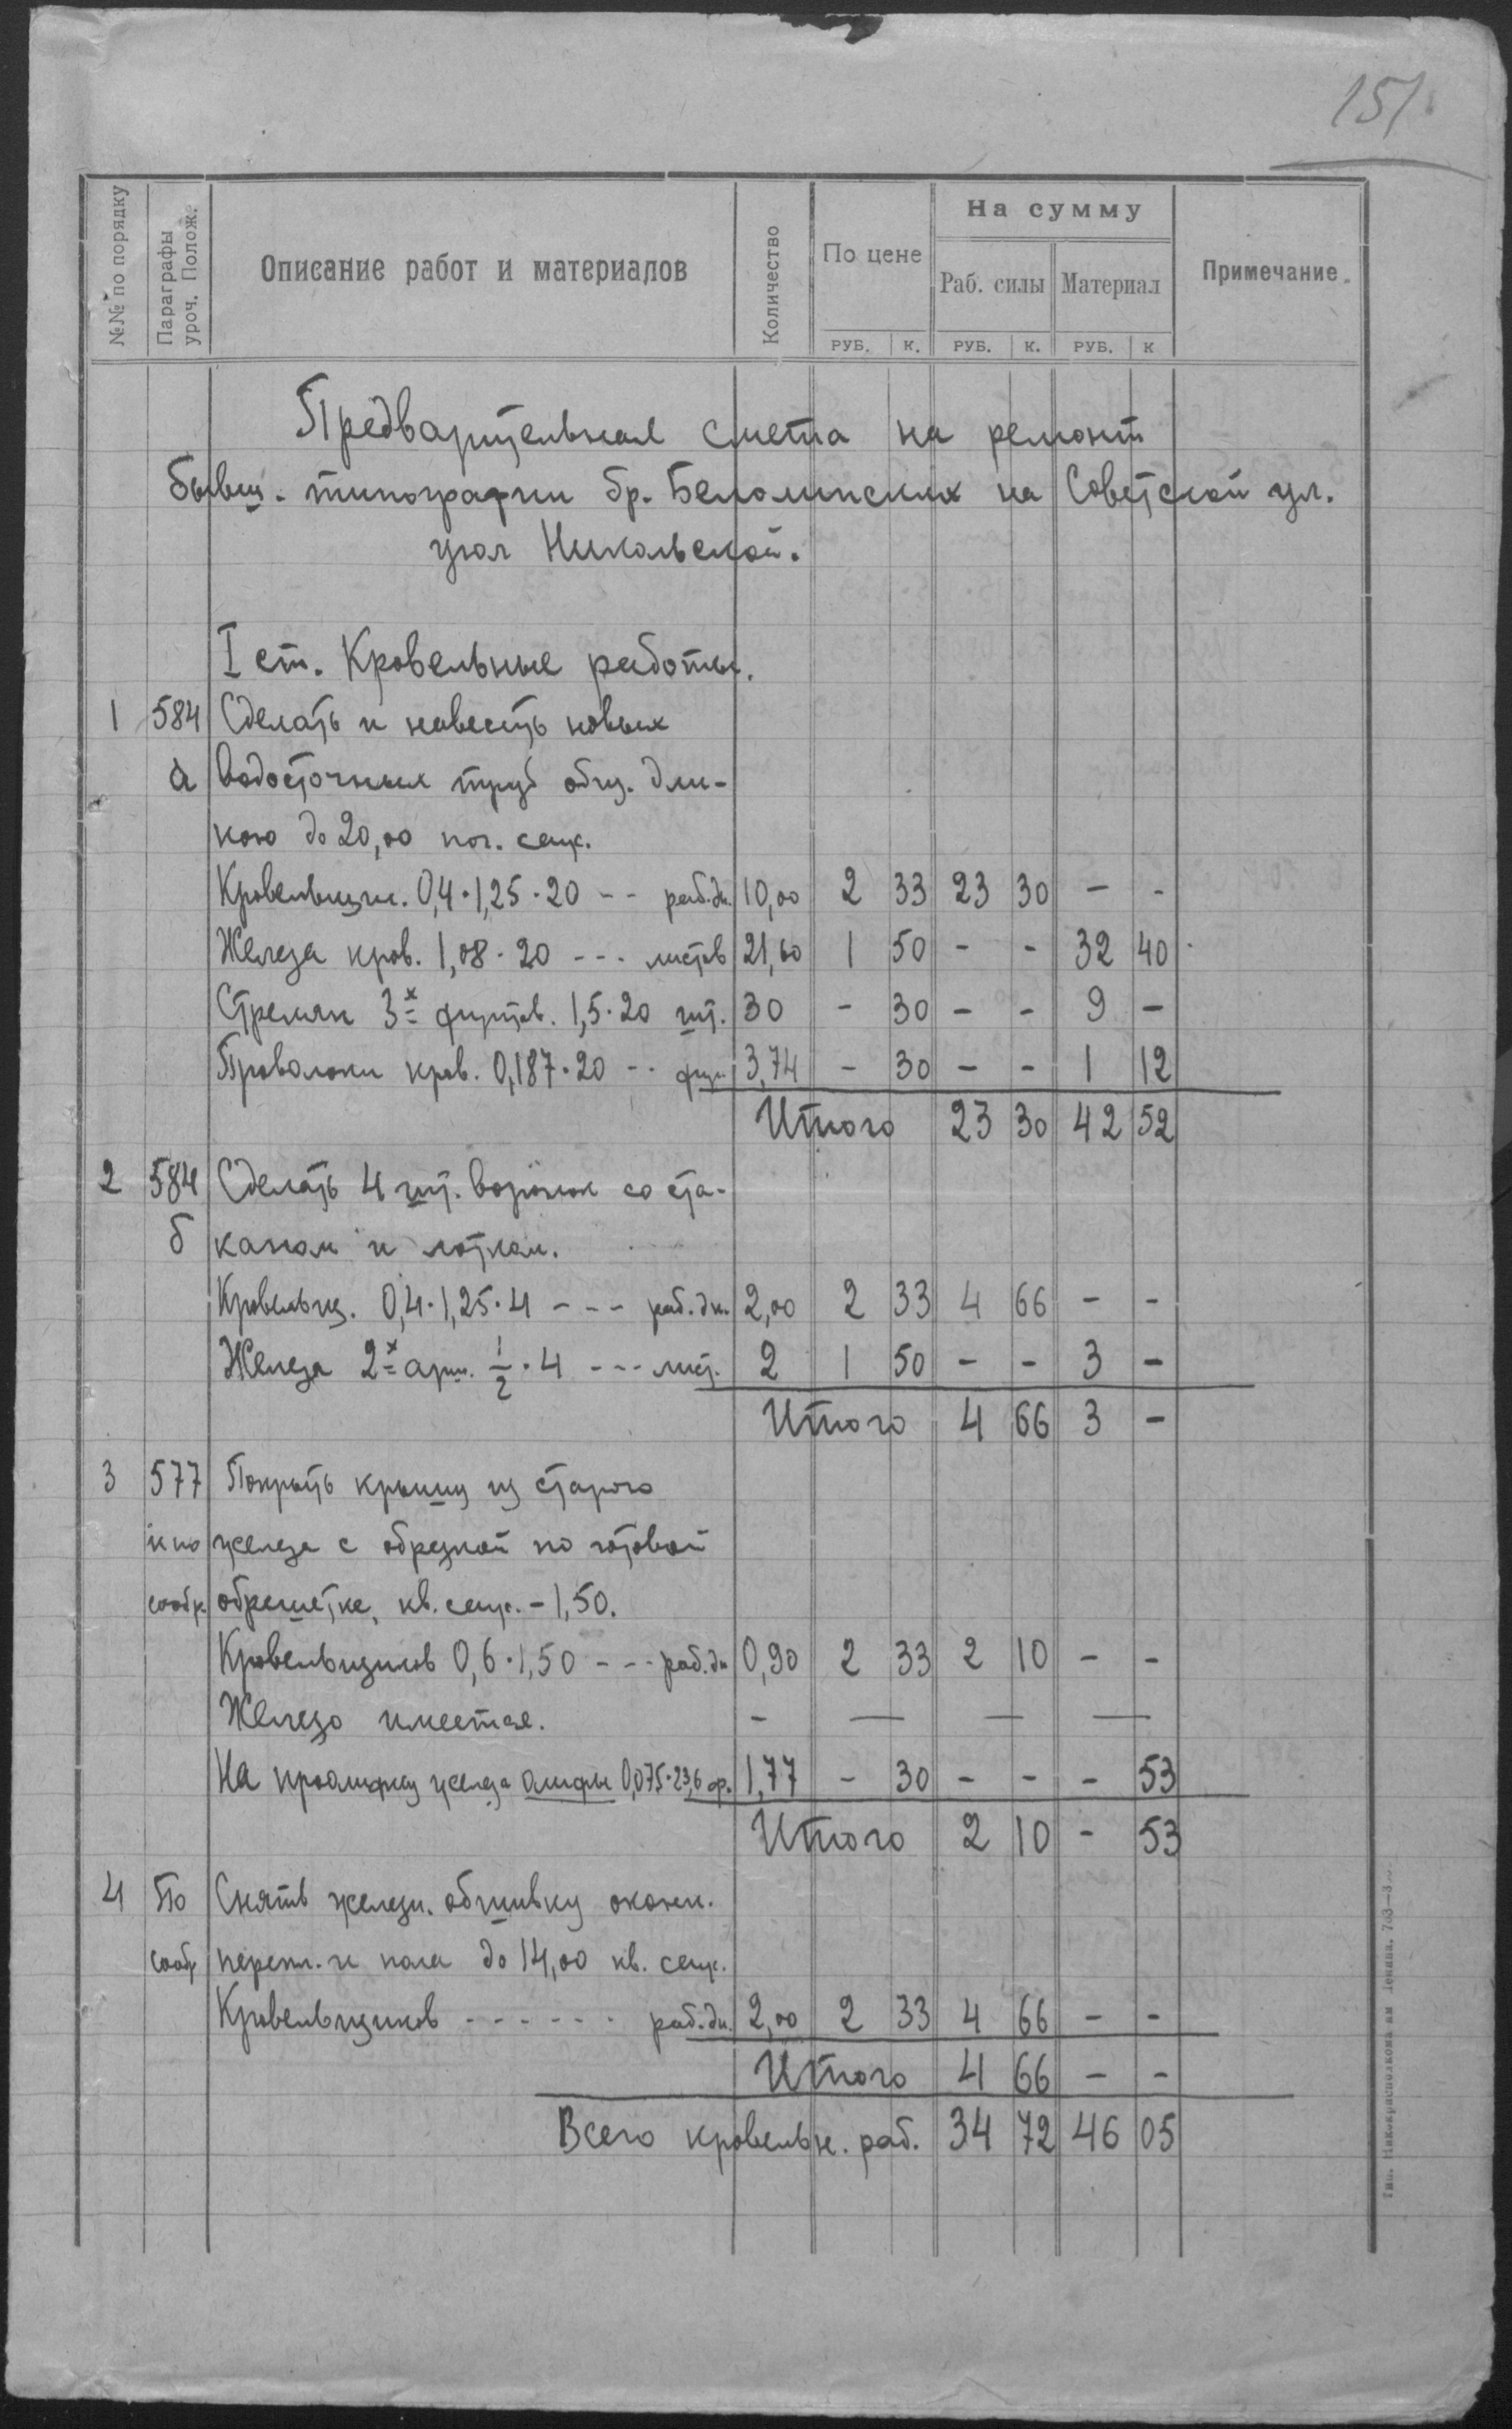 151.
№№ по порядку
Параграфы уроч. Полож.
Описание работ и материалов
Количество
По цене
На сумму
Раб. силы Материал
Примечание
РУБ. К. РУБ. К. РУБ. К
Предварительная смета на ремонт
бывш. типографии бр. Белолипских на Советской ул.
угол Никольской.
I ст. Кровельные работы.
1 584 Сделать и навесить новых
а водосточных труб общ. дли-
ною до 20,00 пог. саж.
Кровельщик. 0,4·1,25·20 -- раб.дн. 10,00 2 33 23 30 - -
Железа кров. 1,08·20 --- листов 21,60 1 50 - - 32 40
Стремян 3х фунтов. 1,5·20 шт. 30 - 30 - - 9 -
Проволоки кров. 0,187·20 -- фун. 3,74 - 30 - - 1 12
Итого 23 30 42 52
2 584 Сделать 4 шт. воронок со ста-
б каном и лотком.
Кровельщ. 0,4·1,25·4 --- раб.дн. 2,00 2 33 4 66 - -
Железа 2х арш. 1/2·4 --- лист. 2 1 50 - - 3 -
Итого 4 66 3 -
3 577 Покрыть крышу из старого
и по железа с обрезкой по готовой
сообр. обрешетке, кв. саж. - 1,50.
Кровельщиков 0,6·1,50 --- раб.дн 0,90 2 33 2 10 - -
Железо имеется. - — — —
На проолифку железа олифы 0,075·23,6 ф. 1,77 - 30 - - - 53
Итого 2 10 - 53
4 По Снять железн. обшивку оконн.
сообр перепл. и пола до 14,00 кв. саж.
Кровельщиков ------ раб.дн. 2,00 2 33 4 66 - -
Итого 4 66 - -
Всего кровельн. раб. 34 72 46 05